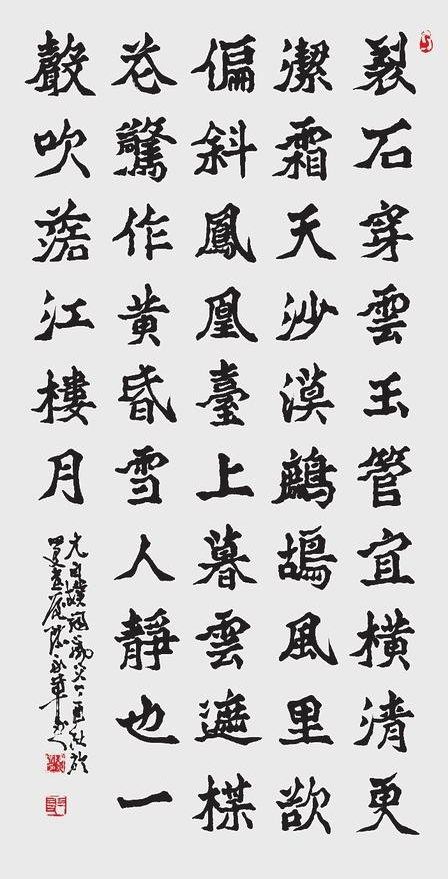 裂石穿雲玉管宜橫清更
潔霜天沙漠鷓鴣風里欲
偏斜鳳凰臺上暮雲遮楳
花驚作黄昏雪人靜也一
聲吹落江樓月